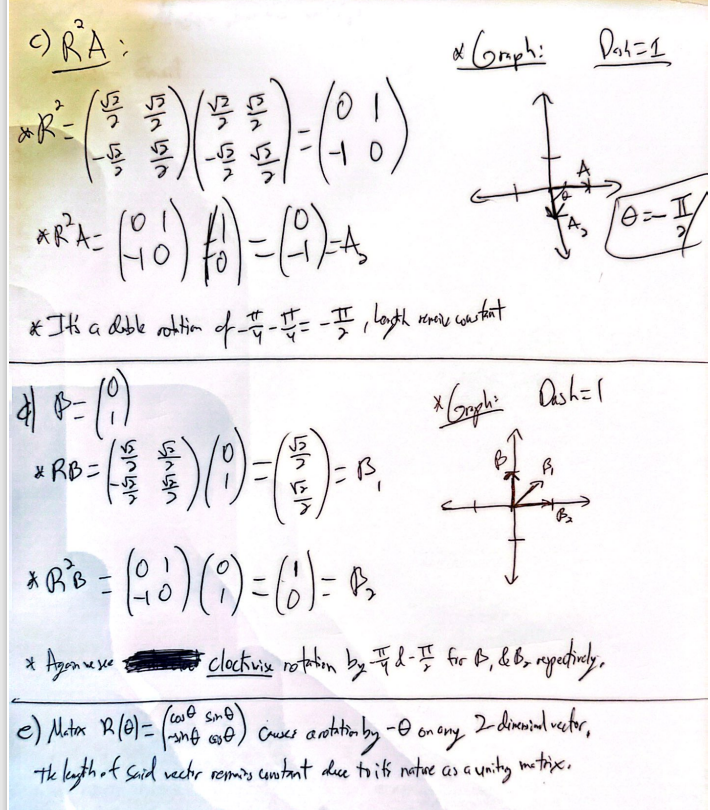 c) R²A :
* Graph: Dash=1
* R² = (√2/2 √2/2 -√2/2 √2/2)(√2/2 √2/2 -√2/2 √2/2) = (0 1 -1 0)
A
θ
A₂
θ = -π/2
* R²A = (0 1 -1 0)(1 0) = (0 -1) = A₂
* It's a double rotation of -π/4 - π/4 = -π/2, length remains constant
d) B = (0 1)
* Graph: Dash=1
* RB = (√2/2 √2/2 -√2/2 √2/2)(0 1) = (√2/2 √2/2) = B₁
B
B₁
B₂
* R²B = (0 1 -1 0)(0 1) = (1 0) = B₂
* Again we see clockwise rotation by π/4 & -π/2 for B₁ & B₂ respectively.
e) Matrix R(θ) = (cosθ sinθ -sinθ cosθ) causes a rotation by -θ on any 2 dimensional vector,
the length of said vector remains constant due to its nature as a unity matrix.